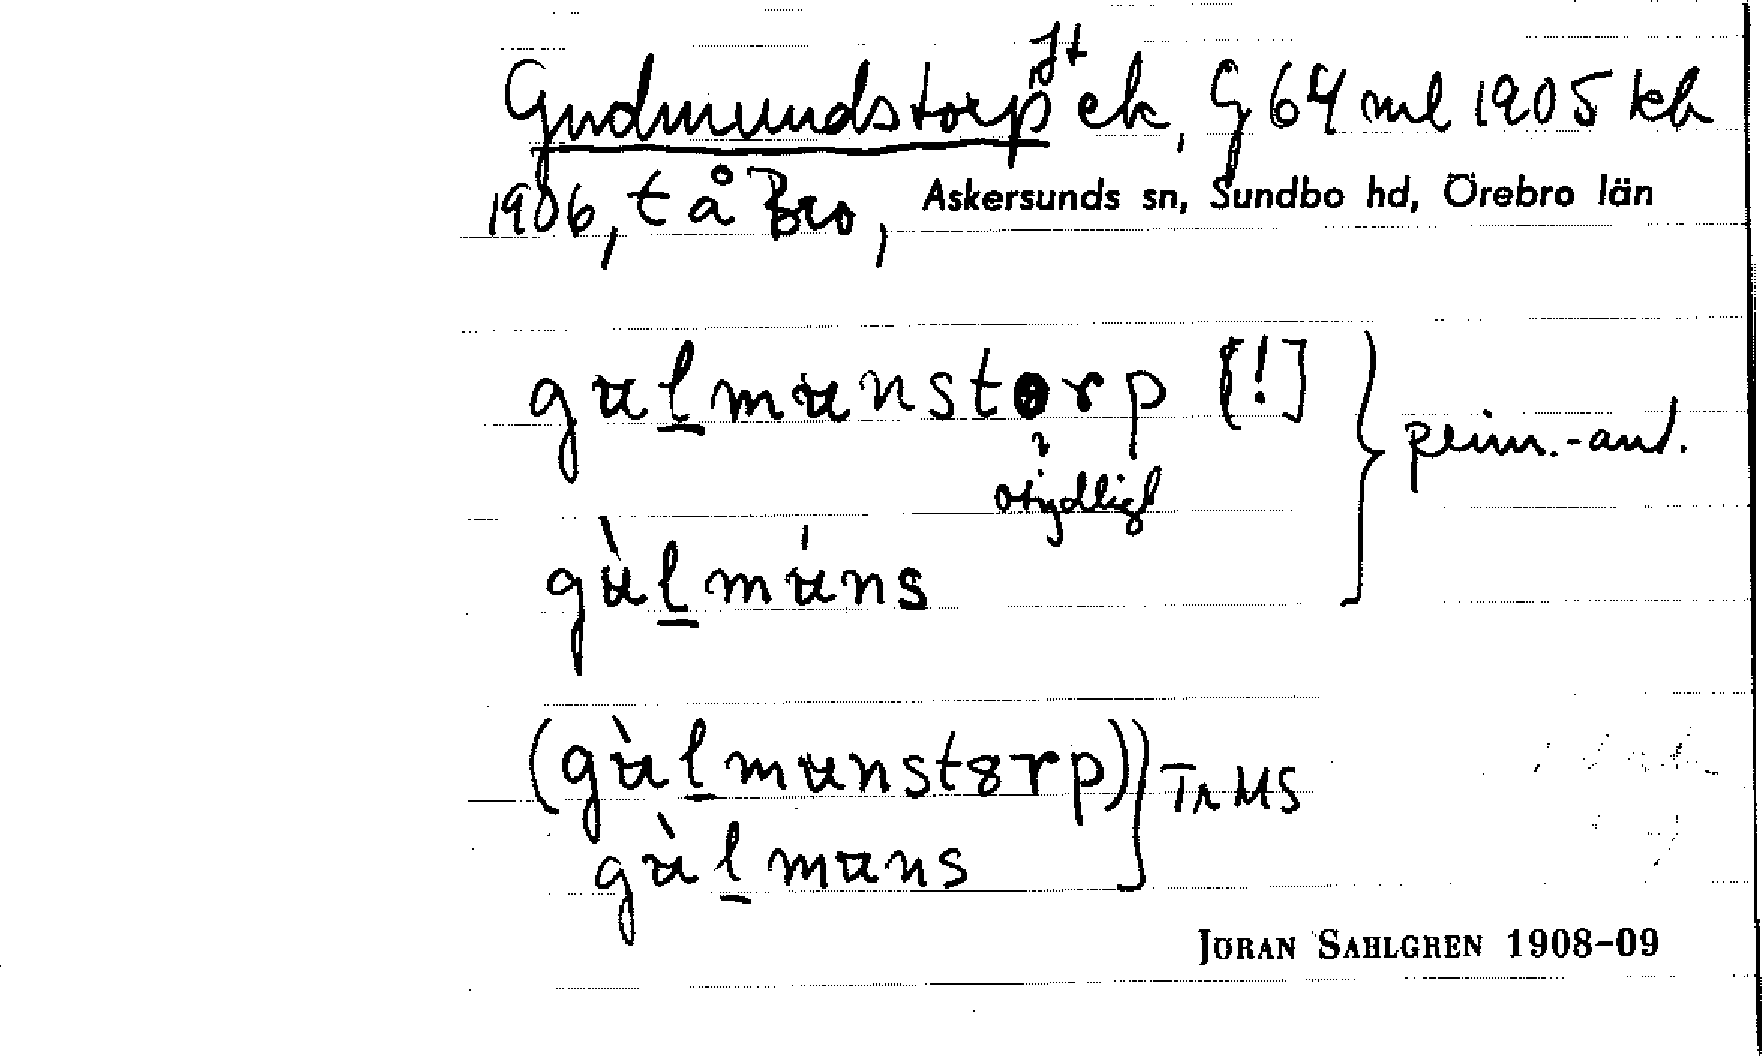 Gudmundstorp Jt ek, G 64 ml 1905 kb
1906, t å Bro, Askersunds sn, Sundbo hd, Örebro län
gʉl̲mʉnstorp [!]
otydligt
prim.-ant.
gʉ̀l̲mʉ́ns
(gʉ̀l̲mʉnstɞrp)) Tr MS
gʉ̀l̲mʉns
JÖRAN SAHLGREN 1908-09